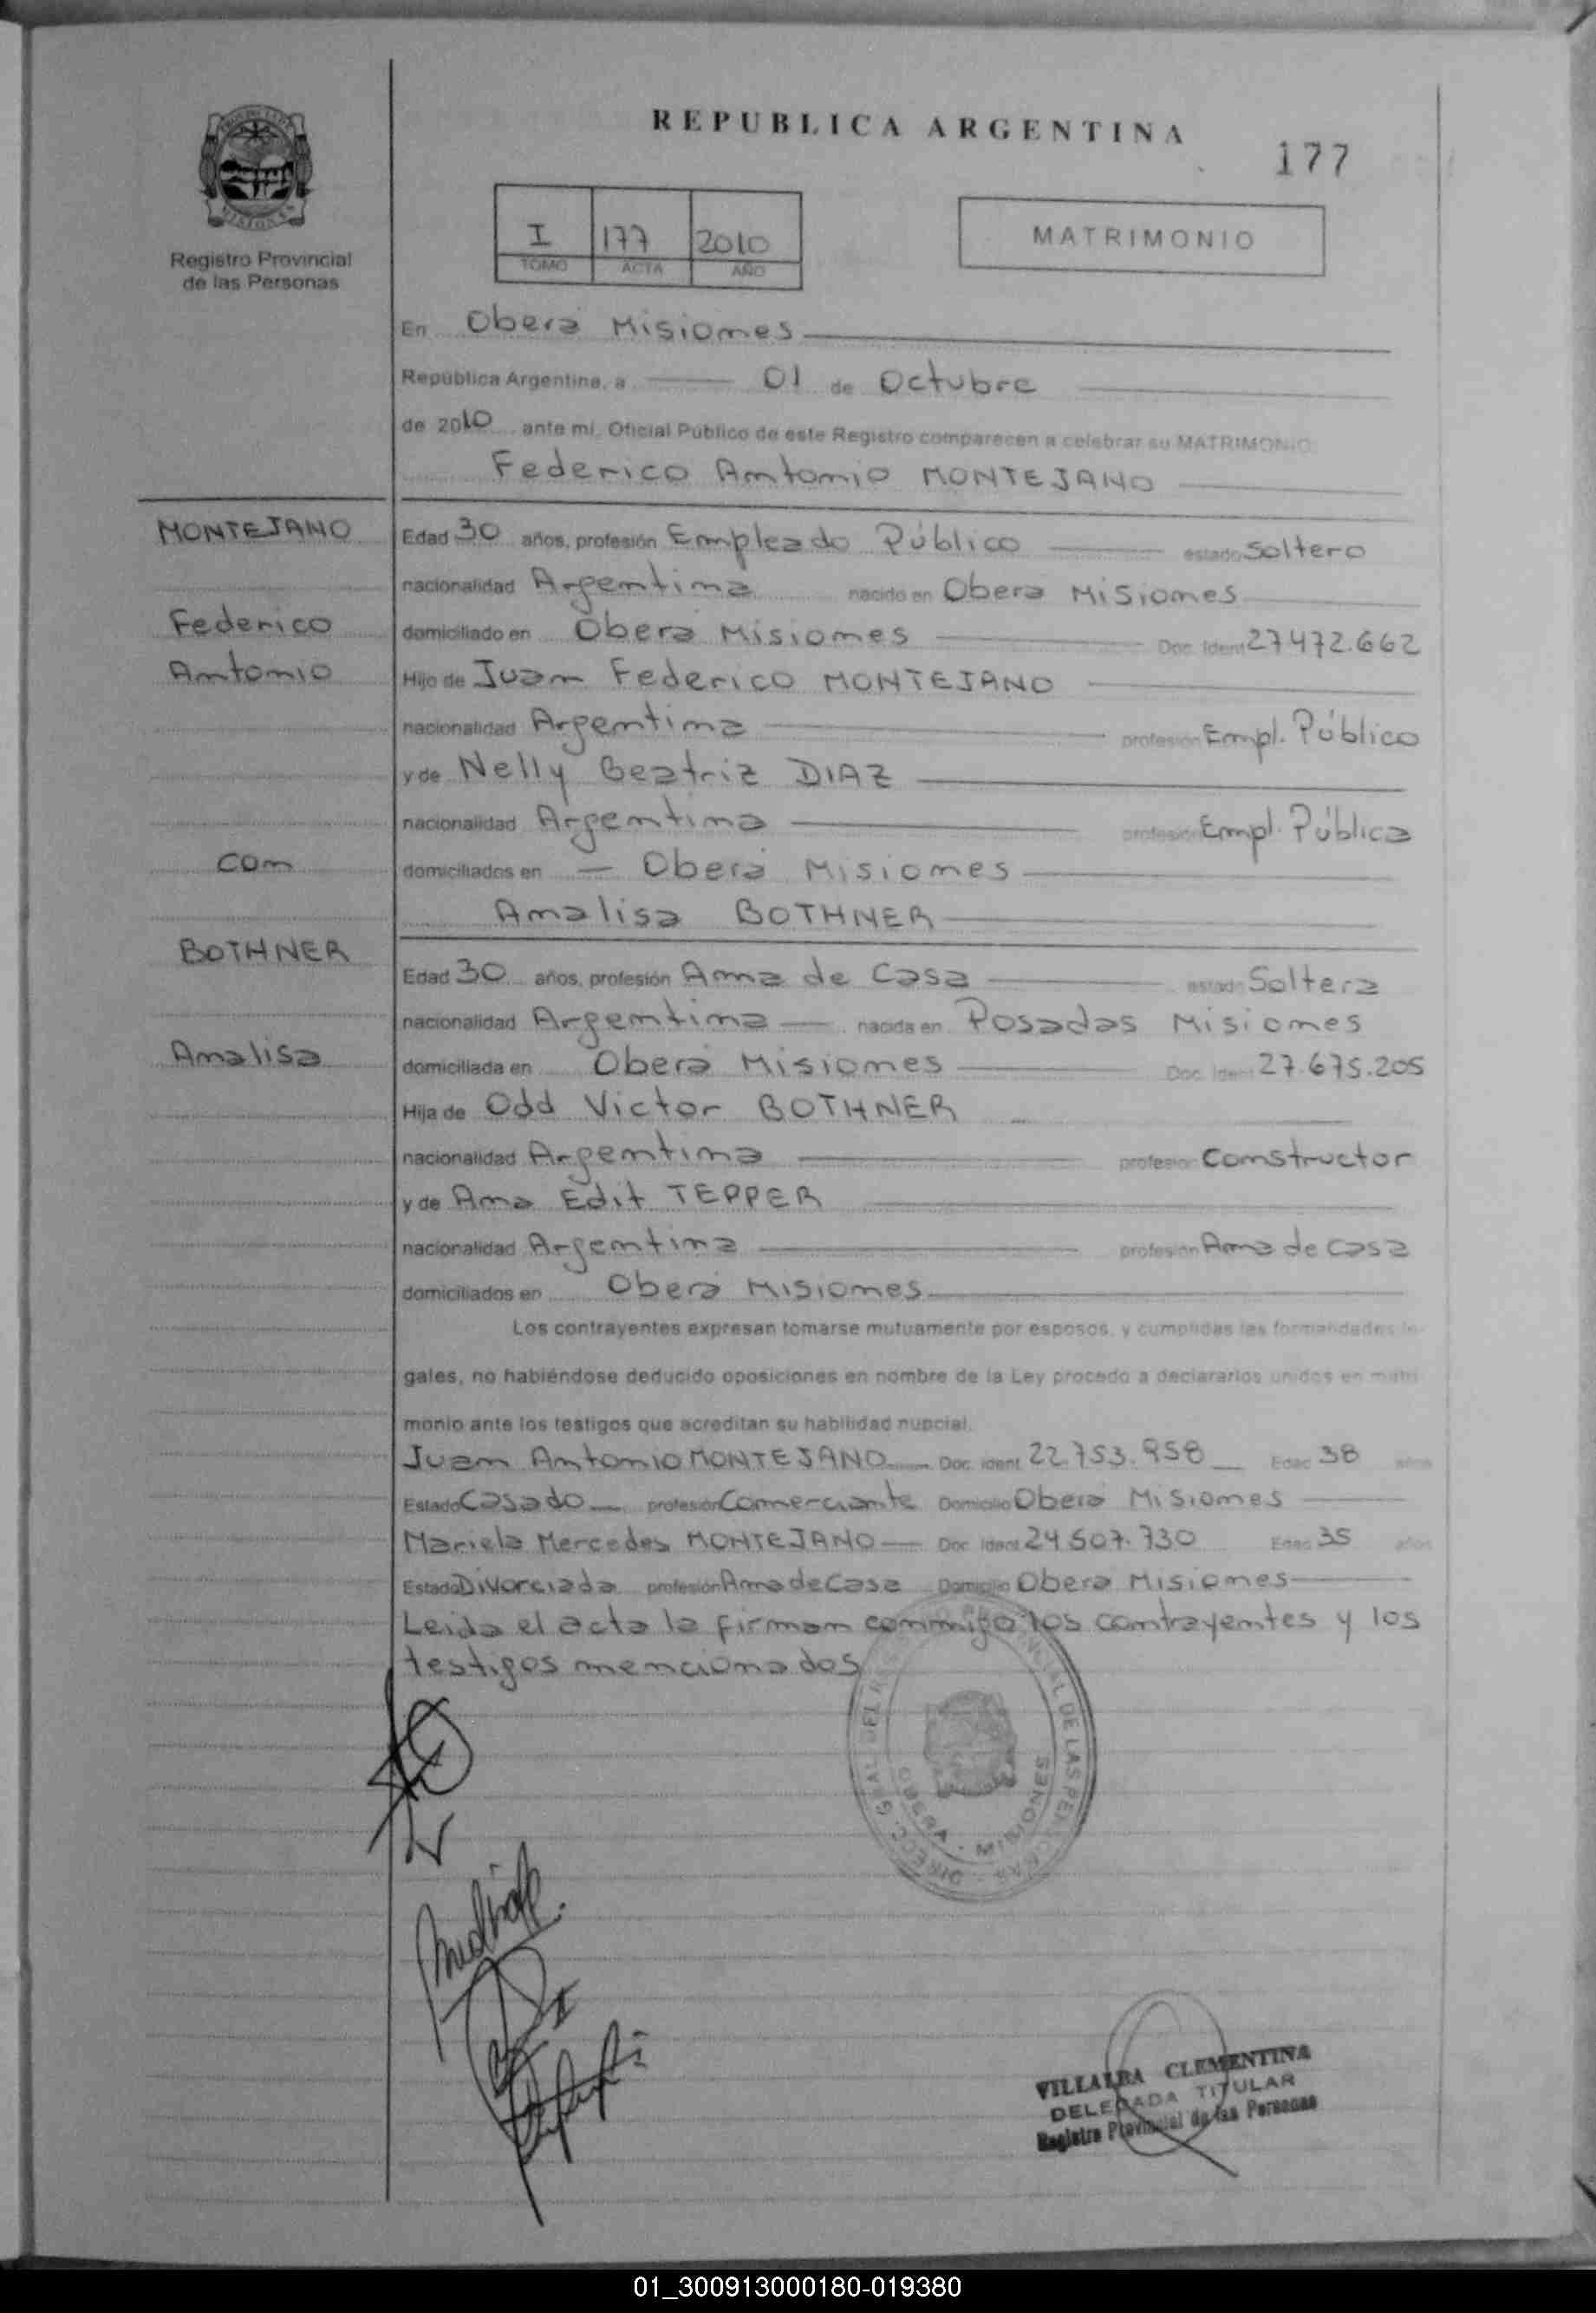 REPUBLICA ARGENTINA
177
Registro Provincial
de las Personas
I 177 2010
TOMO ACTA AÑO
MATRIMONIO
En Oberá Misiones
República Argentina, a 01 de Octubre
de 2010 ante mi, Oficial Público de este Registro comparecen a celebrar su MATRIMONIO
Federico Antonio MONTEJANO
MONTEJANO
Federico
Antonio
con
BOTHNER
Analisa
Edad 30 años, profesión Empleado Público estado Soltero
nacionalidad Argentina nacido en Oberá Misiones
domiciliado en Oberá Misiones Doc. Ident 27472.662
Hijo de Juan Federico MONTEJANO
nacionalidad Argentina profesión Empl. Público
y de Nelly Beatriz DIAZ
nacionalidad Argentina profesión Empl. Pública
domiciliados en Oberá Misiones
Analisa BOTHNER
Edad 30 años, profesión Ama de Casa estado Soltera
nacionalidad Argentina nacida en Posadas Misiones
domiciliada en Oberá Misiones Doc. Ident 27.675.205
Hija de Odd Victor BOTHNER
nacionalidad Argentina profesión Constructor
y de Ana Edit TEPPER
nacionalidad Argentina profesión Ama de casa
domiciliados en Oberá Misiones
Los contrayentes expresan tomarse mutuamente por esposos, y cumplidas las formalidades le-
gales, no habiéndose deducido oposiciones en nombre de la Ley procedo a declararlos unidos en matri
monio ante los testigos que acreditan su habilidad nupcial.
Juan Antonio MONTEJANO Doc. Ident 22.753.958 Edad 38 años
Estado Casado profesión Comerciante Domicilio Oberá Misiones
Mariela Mercedes MONTEJANO Doc. Ident 24507.730 Edad 35 años
Estado Divorciada profesión Ama de Casa Domicilio Oberá Misiones
Leida el acta la firman conmigo los contrayentes y los
testigos mencionados
OBERA - MISIONES
VILLALBA CLEMENTINA
DELEGADA TITULAR
Registro Provincial de las Personas
01_300913000180-019380